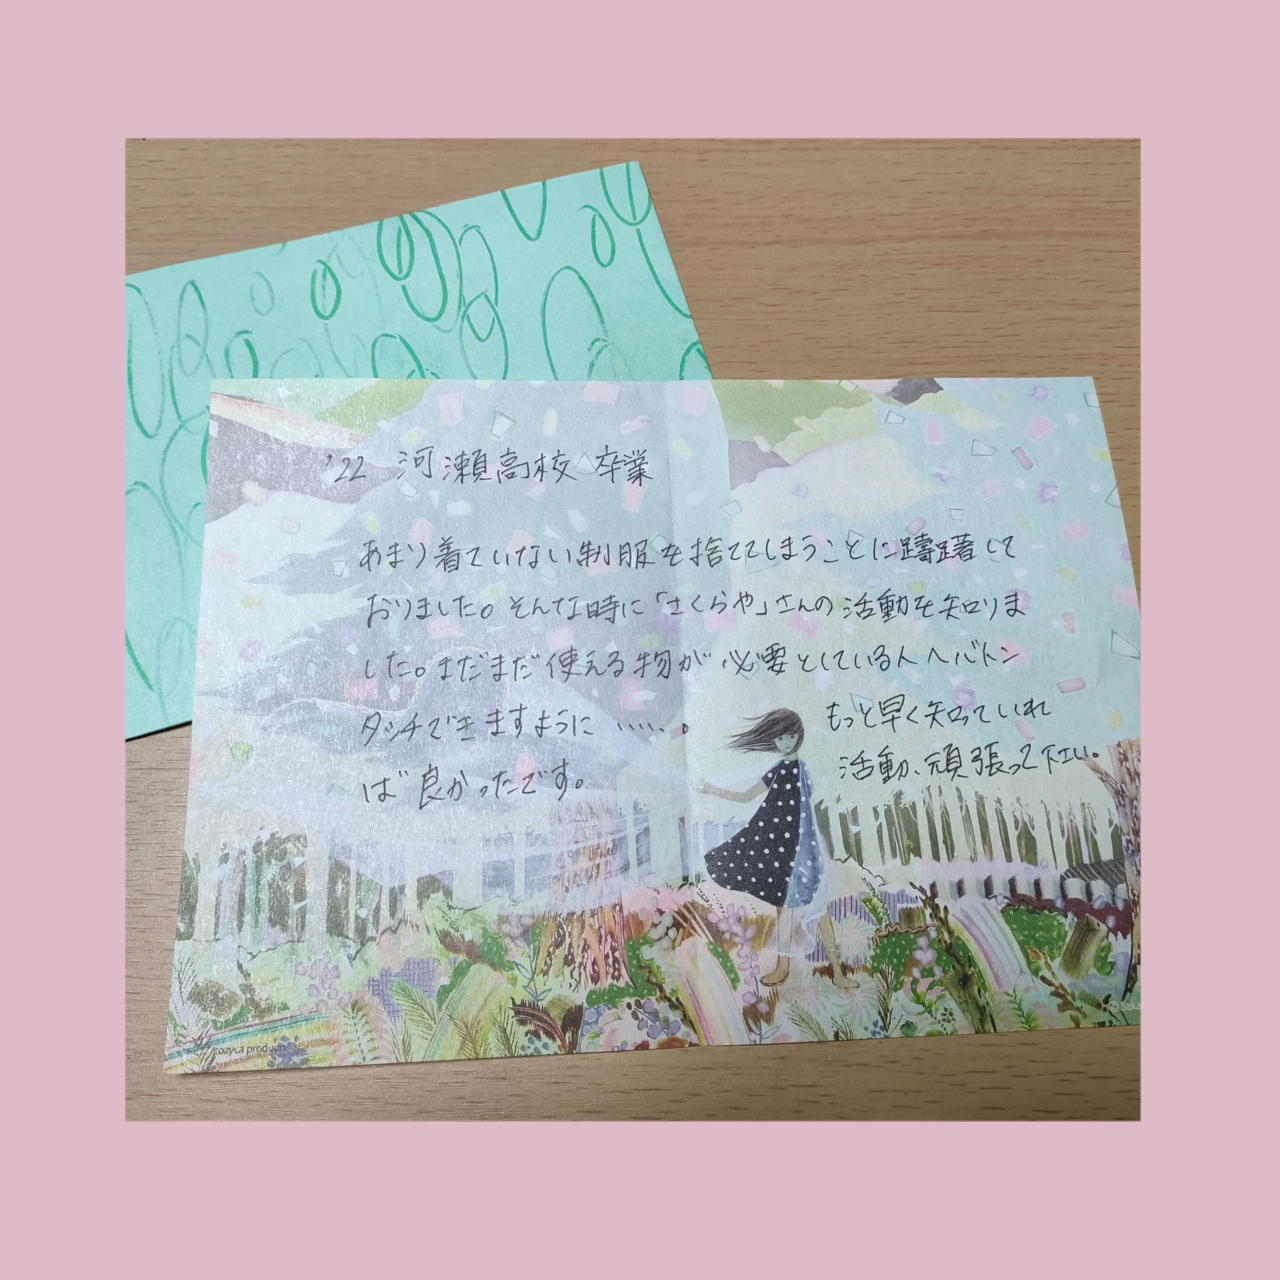 '22 河瀬高校 卒業
あまり着ていない制服を捨ててしまうことに躊躇して
おりました。そんな時に「さくらや」さんの活動を知りま
した。まだまだ使える物が必要としている人へバトン
タッチできますように……。
もっと早く知っていれ
ば良かったです。
活動、頑張って下さい。
cozyca products